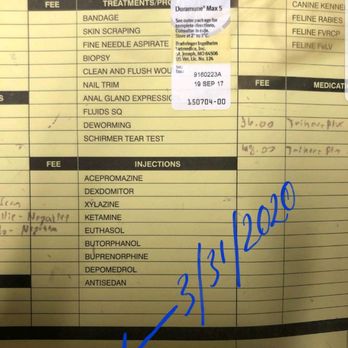 FEE
TREATMENTS/PRO
BANDAGE
SKIN SCRAPING
FINE NEEDLE ASPIRATE
BIOPSY
CLEAN AND FLUSH WOU
NAIL TRIM
ANAL GLAND EXPRESSIO
FLUIDS SQ
DEWORMING
SCHIRMER TEAR TEST
Duramune® Max 5
See outer package for
complete directions.
Store at 2° to 7°C.
Boehringer Ingelheim
Vetmedica, Inc.
St. Joseph, MO 64506
US Vet. Lic. No. 124
9160223A
19 SEP 17
150704-00
CANINE KENNEL
FELINE RABIES
FELINE FVRCP
FELINE FeLV
FEE
MEDICAT
36.00
FEE
INJECTIONS
ACEPROMAZINE
DEXDOMITOR
XYLAZINE
KETAMINE
EUTHASOL
BUTORPHANOL
BUPRENORPHINE
DEPOMEDROL
ANTISEDAN
3/31/2020